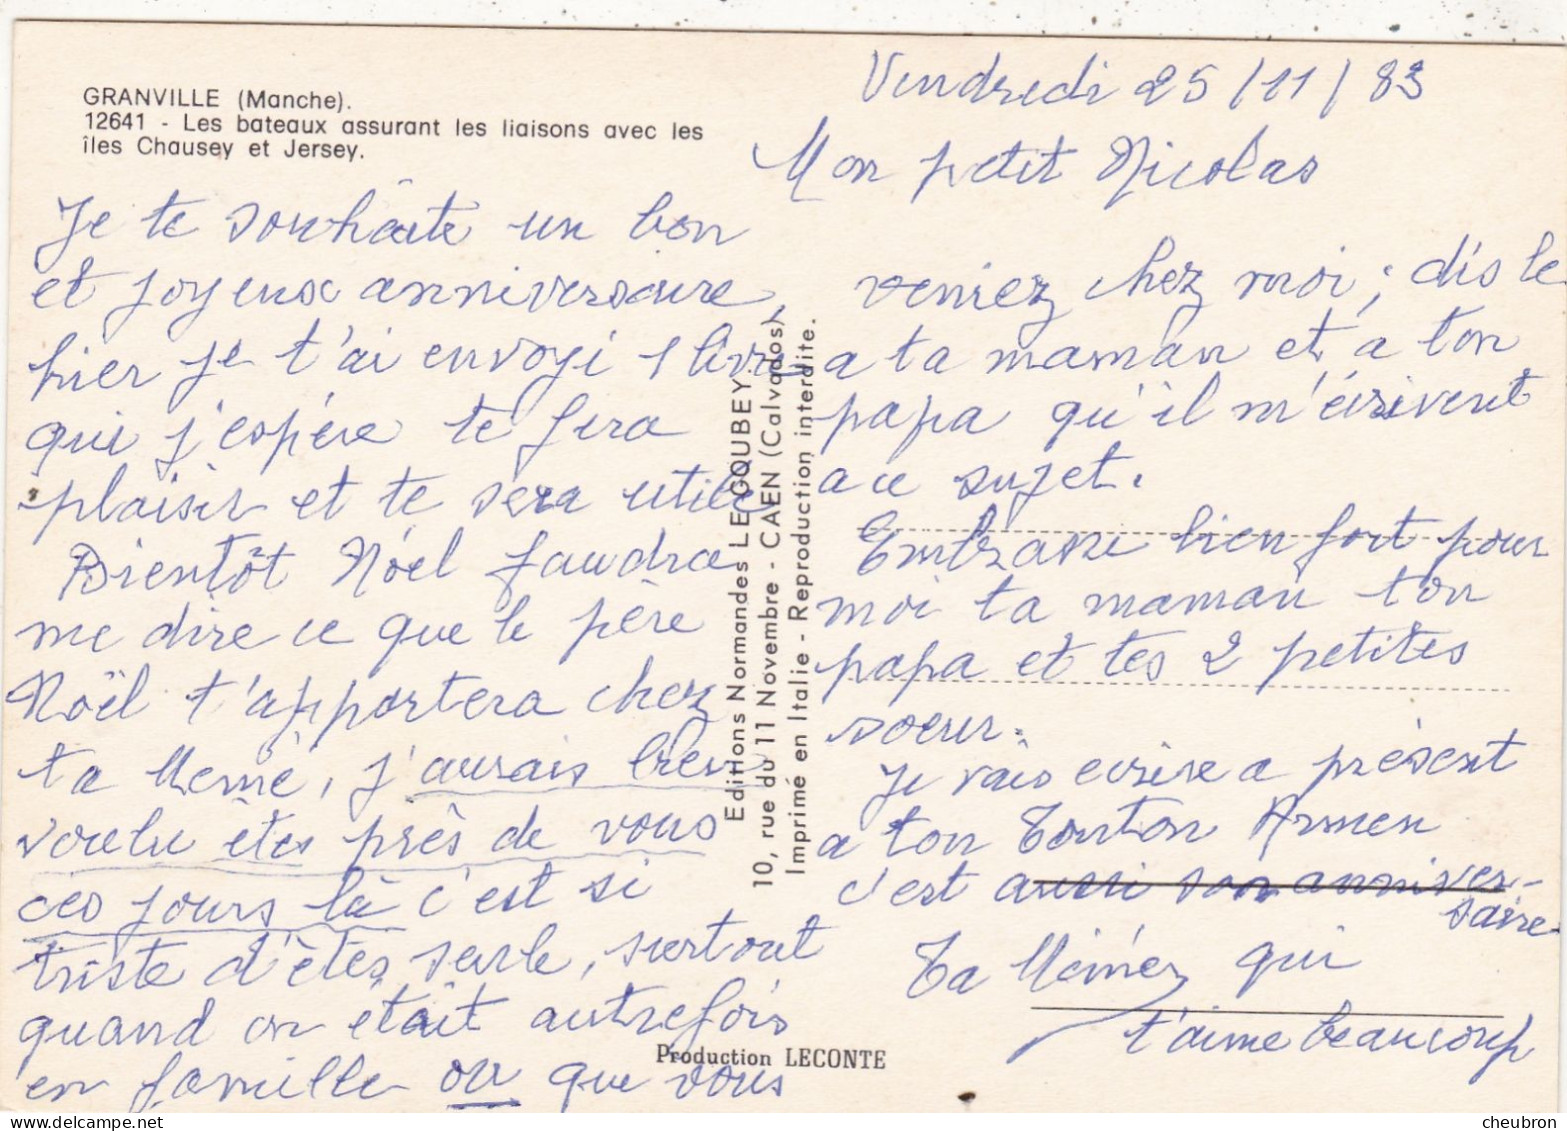 GRANVILLE (Manche).
12641 - Les bateaux assurant les liaisons avec les
îles Chausey et Jersey.
Vendredi 25/11/83
Mon petit Nicolas
Je te souhaite un bon
et joyeux anniversaire,
hier je t'ai envoyé 1 livre
qui j'espére te fera
plaisir et te sera utile
Bientôt Nöel faudra
me dire ce que le père
Noël t'apportera chez
ta Mémé, j'aurais bien
voulu êtes près de vous
ces jours là c'est si
triste d'êtes seule, surtout
quand on était autrefois
en famille ou que vous
veniez chez moi; dis le
a ta maman et a ton
papa qu'il m'écrivent
a ce sujet.
Embrasse bien fort pour
moi ta maman ton
papa et tes 2 petites
soeur.
Je vais ecrire a présent
a ton Tonton Armen
c'est aussi son anniver-
saire-
Ta Mémée qui
t'aime beaucoup
Editions Normandes LE GOUBEY
10, rue du 11 Novembre - CAEN (Calvados)
Imprimé en Italie - Reproduction interdite.
Production LECONTE
cheubron